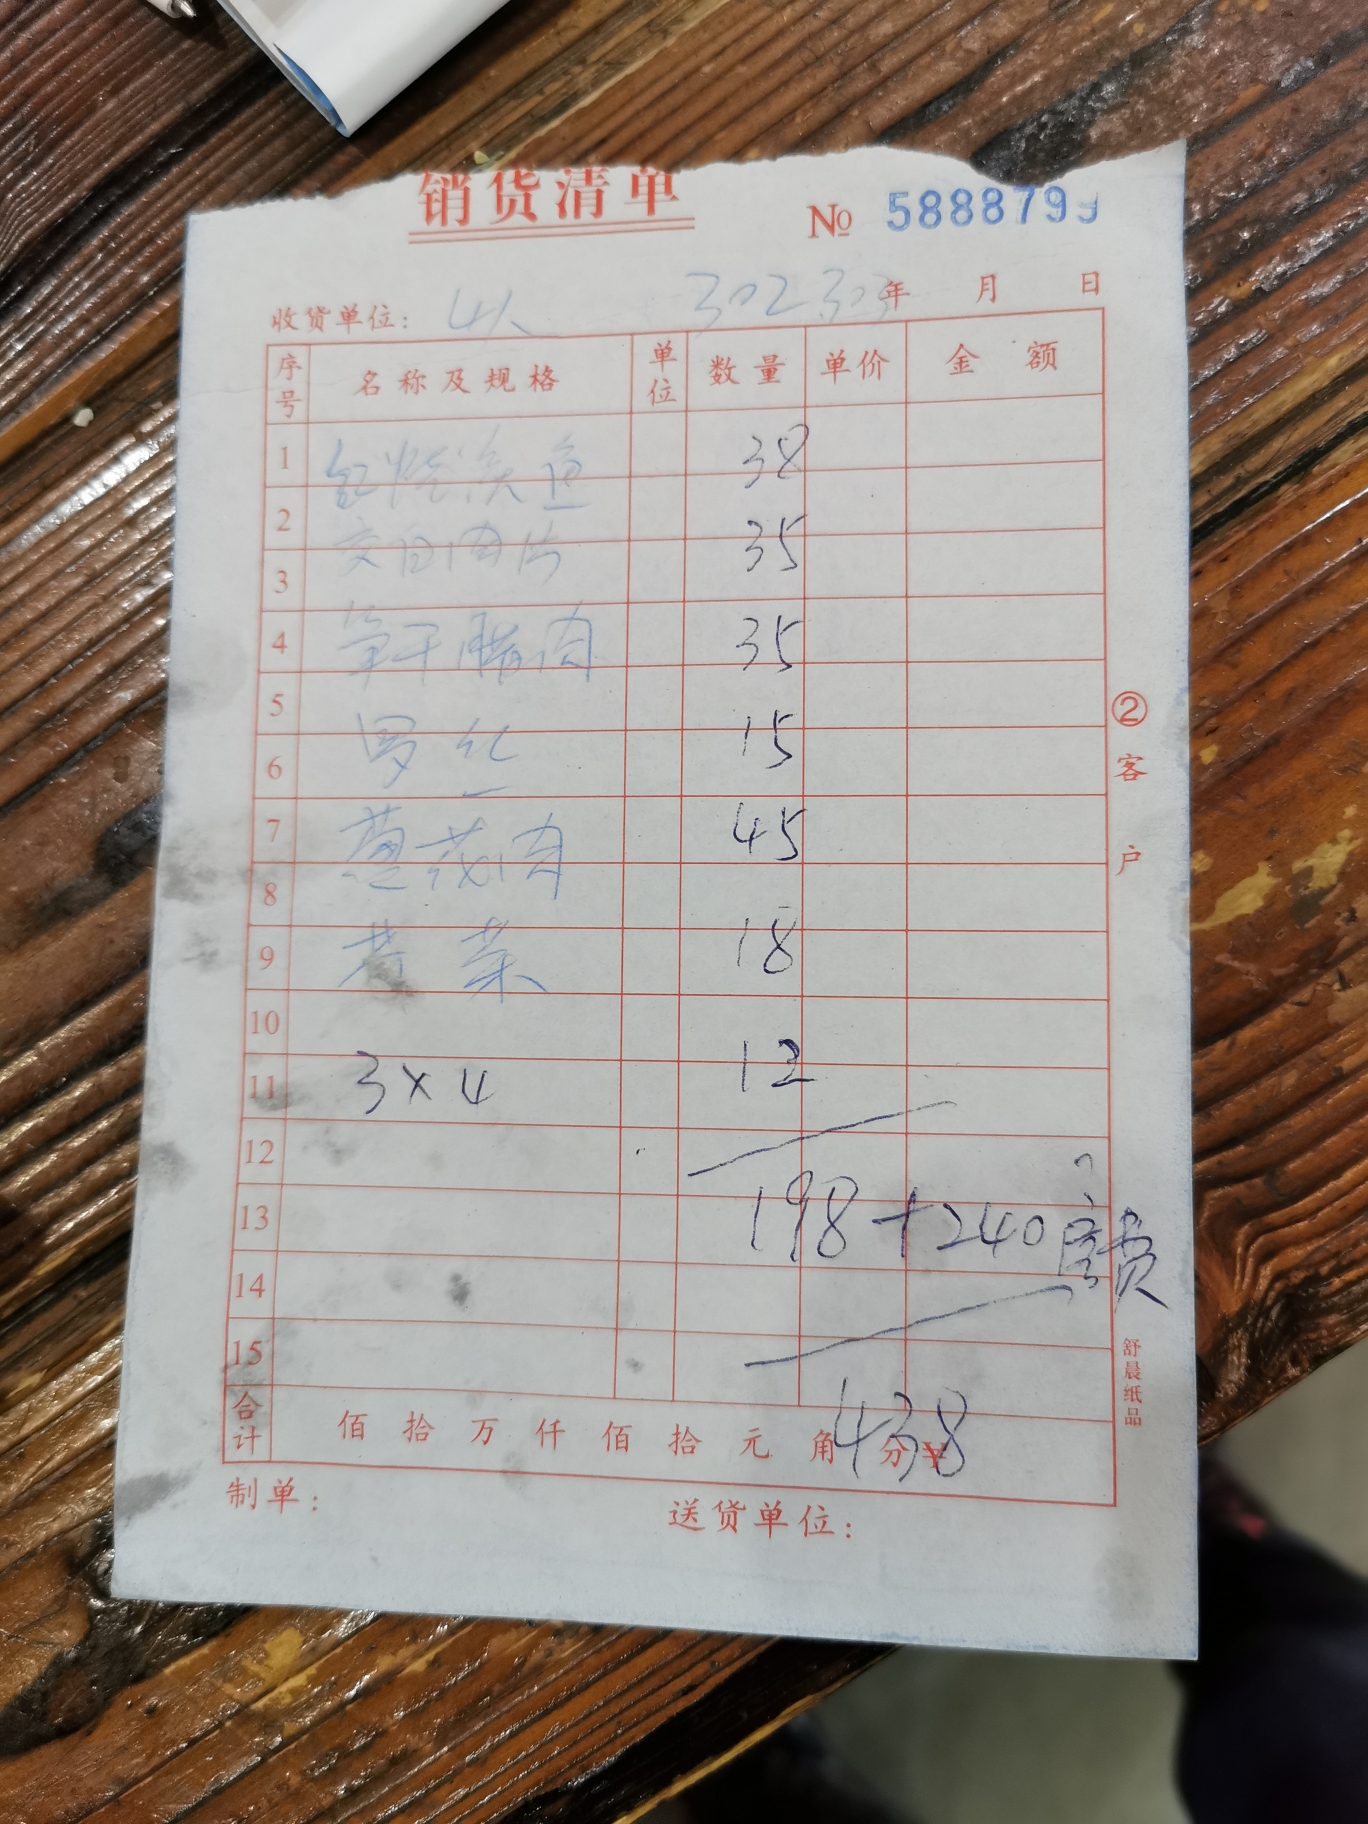 销货清单
№ 5888799
收货单位: 4人 302 303 年 月 日
序号 名称及规格 单位 数量 单价 金额
1 红烧溪鱼 38
2
3 茭白肉片 35
4 笋干腊肉 35
5
6 罗丝 15
7 葱花肉 45
8
9 苦菜 18
10
11 3×4 12
12
13 198+240房费
14
15
合计 佰 拾 万 仟 佰 拾 元 角 分 ¥ 438
制单: 送货单位:
②客户
舒晨纸品